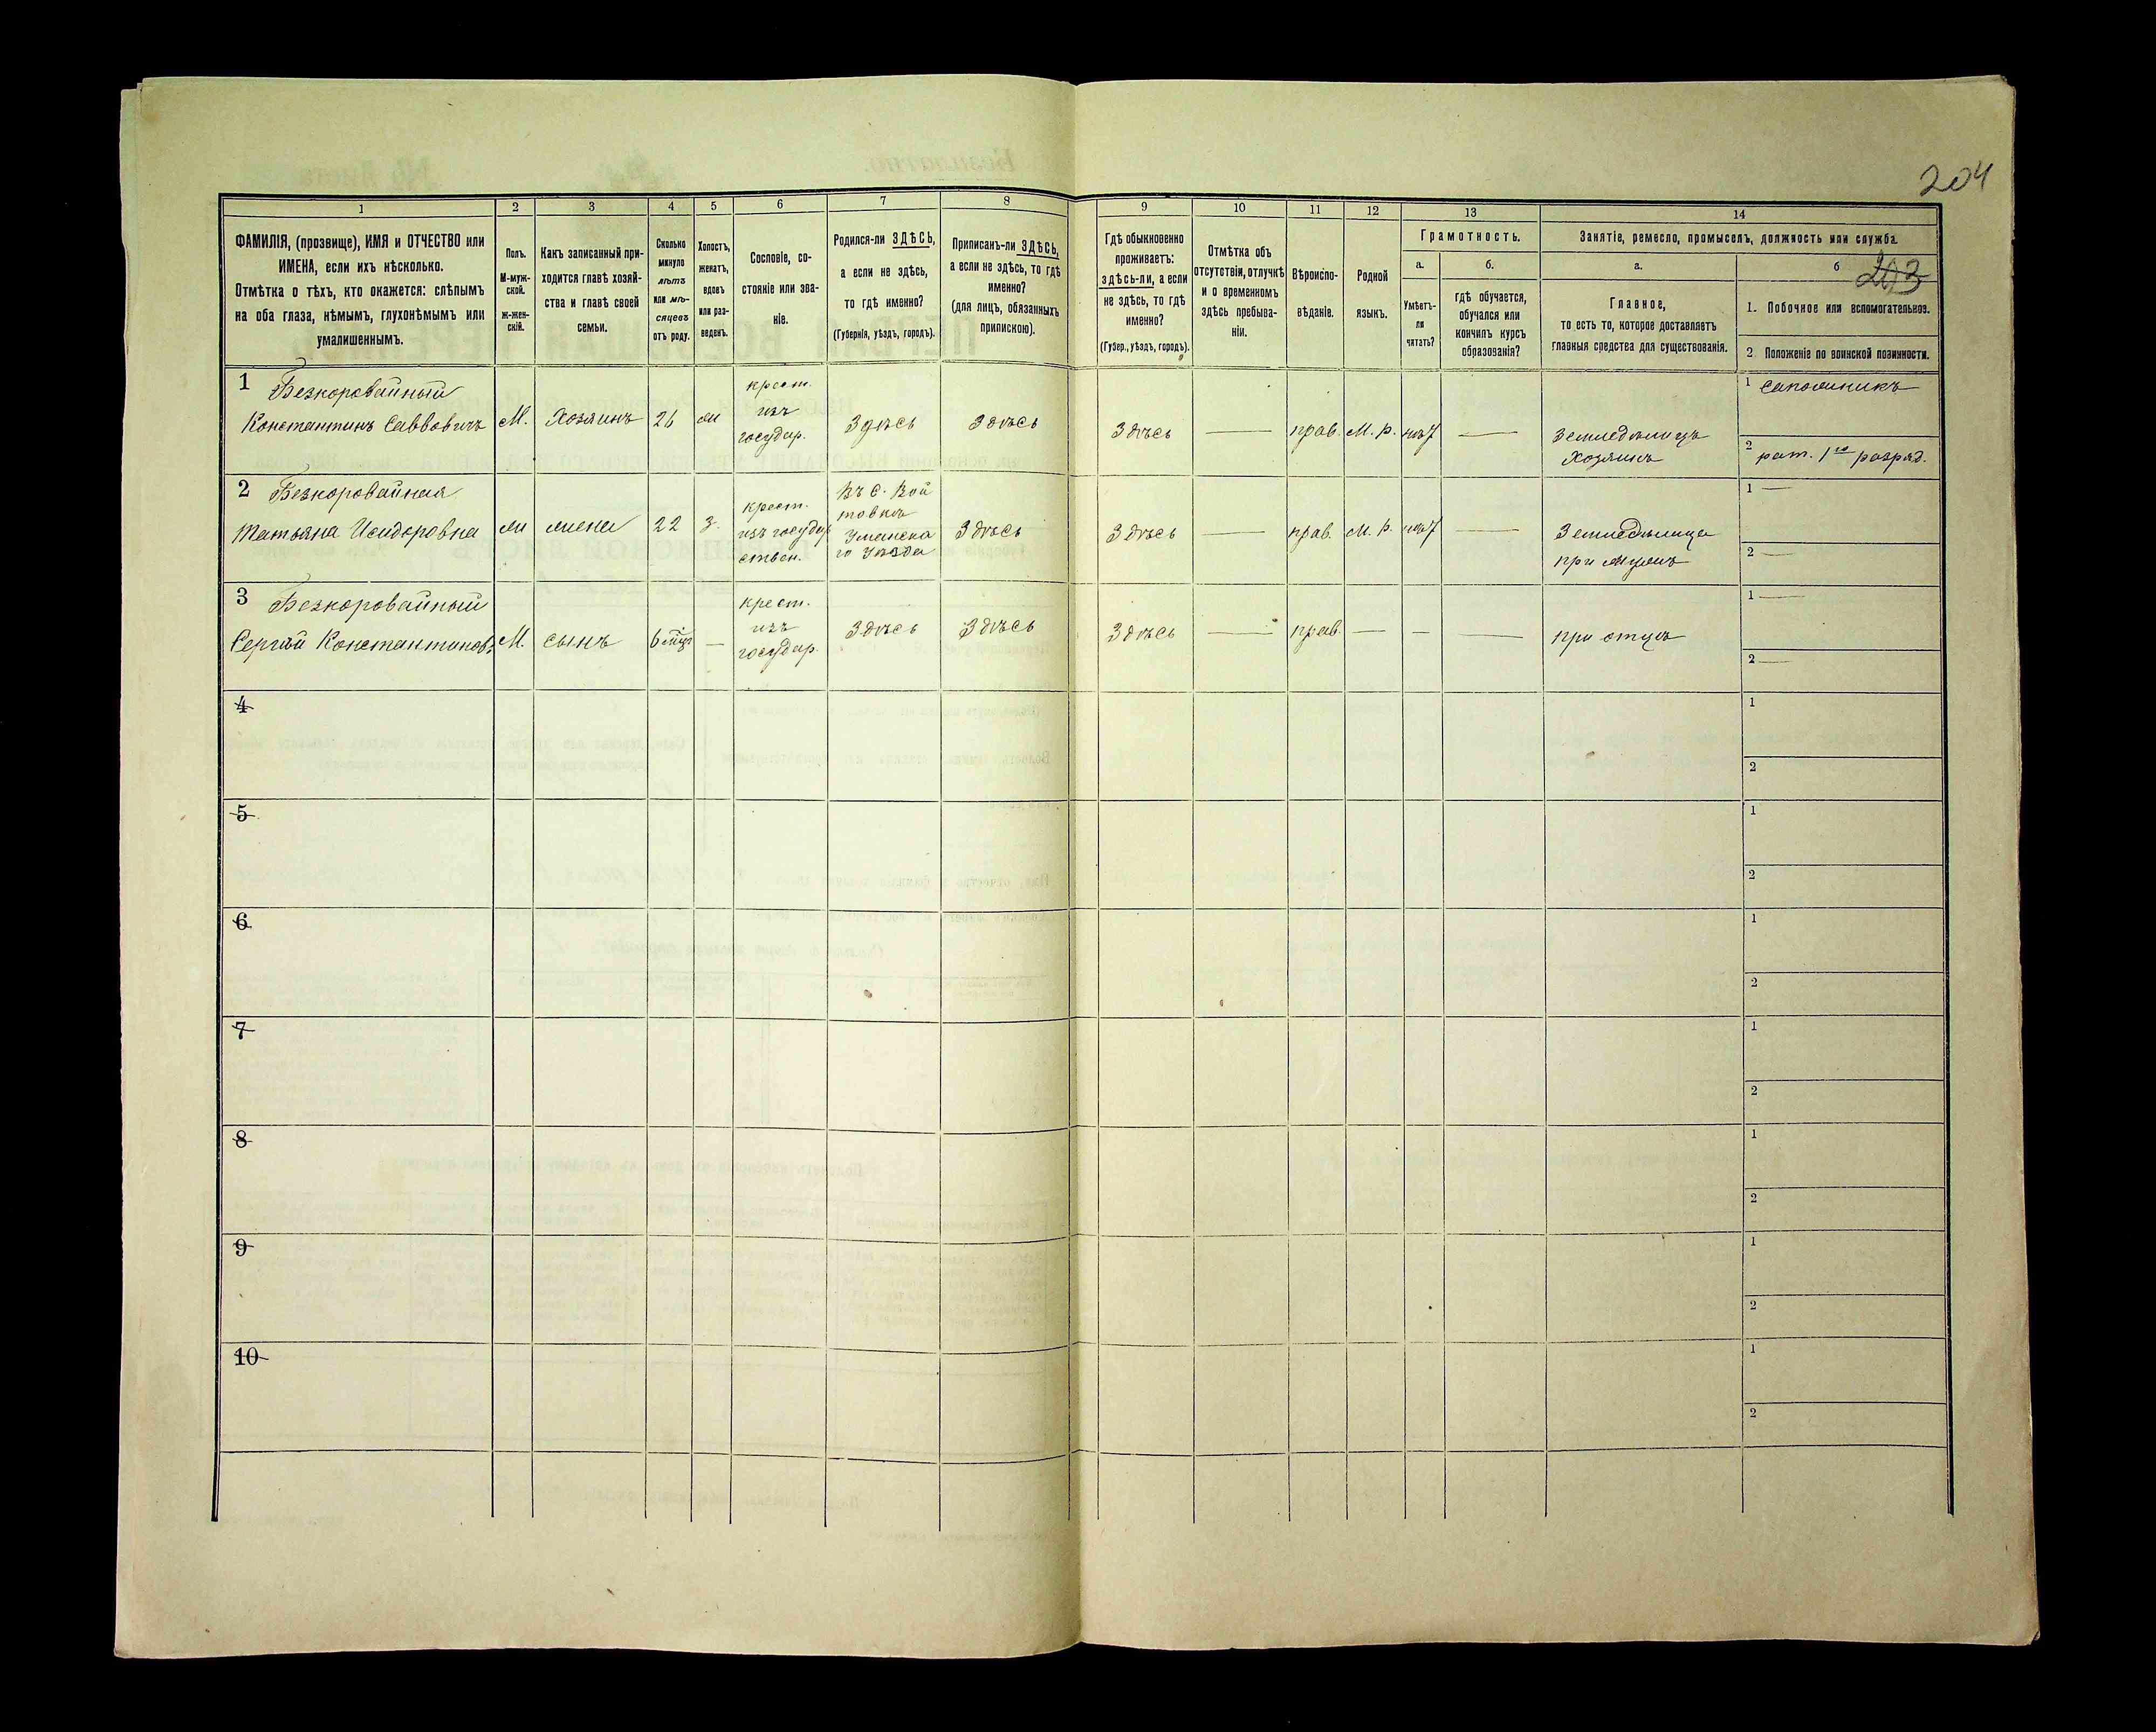 204
1
2
3
4
5
6
7
8
9
10
11
12
13
14
ФАМИЛІЯ, (прозвище), ИМЯ и ОТЧЕСТВО или
ИМЕНА, если ихъ нѣсколько.
Отмѣтка о тѣхъ, кто окажется: слѣпымъ
на оба глаза, нѣмымъ, глухонѣмымъ или
умалишеннымъ.
Полъ.
М-муж-
ской.
ж-жен-
скій.
Какъ записанный при-
ходится главѣ хозяй-
ства и главѣ своей
семьи.
Сколько
минуло
лѣтъ
или мѣ-
сяцевъ
отъ роду.
Холостъ,
женатъ,
вдовъ
или раз-
веденъ.
Сословіе, со-
стояніе или зва-
ніе.
Родился-ли ЗДѢСЬ,
а если не здѣсь,
то гдѣ именно?
(Губернія, уѣздъ, городъ).
Приписанъ-ли ЗДѢСЬ,
а если не здѣсь, то гдѣ
именно?
(для лицъ, обязанныхъ
припискою).
Гдѣ обыкновенно
проживаетъ:
здѣсь-ли, а если
не здѣсь, то гдѣ
именно?
(Губер., уѣздъ, городъ).
Отмѣтка объ
отсутствіи, отлучкѣ
и о временномъ
здѣсь пребыва-
ніи.
Вѣроиспо-
вѣданіе.
Родной
языкъ.
Грамотность.
а.
б.
Умѣетъ-
ли
читать?
гдѣ обучается,
обучался или
кончилъ курсъ
образованія?
Занятіе, ремесло, промыселъ, должность или служба.
а.
б
203
Главное,
то есть то, которое доставляетъ
главныя средства для существованія.
1. Побочное или вспомогательное.
2 Положеніе по воинской повинности.
1 Безкоровайный
Константинъ Савовичъ
М.
Хозяинъ
26
ж
крест.
изъ
государ.
Здѣсь
Здѣсь
Здѣсь
—
прав.
М. р.
нѣт
—
Земледѣлецъ
Хозяинъ
1 Сапожникъ
2 рат. 1го разряд.
2 Безкоровайная
Татьяна Исидоровна
ж
жена
22
з.
крест.
изъ государ
ствен.
Въ с. Вой
товкѣ
Уманска
го Уѣзда
Здѣсь
Здѣсь
—
прав.
М. р.
нѣт
—
Земледѣлица
при мужѣ
1 —
2 —
3 Безкоровайный
Сергѣй Константинов.
М.
сынъ
6 мѣс
—
крест.
изъ
государ.
Здѣсь
Здѣсь
Здѣсь
—
прав.
—
—
—
при отцѣ
1 —
2 —
4
1
2
5
1
2
6
1
2
7
1
2
8
1
2
9
1
2
10
1
2